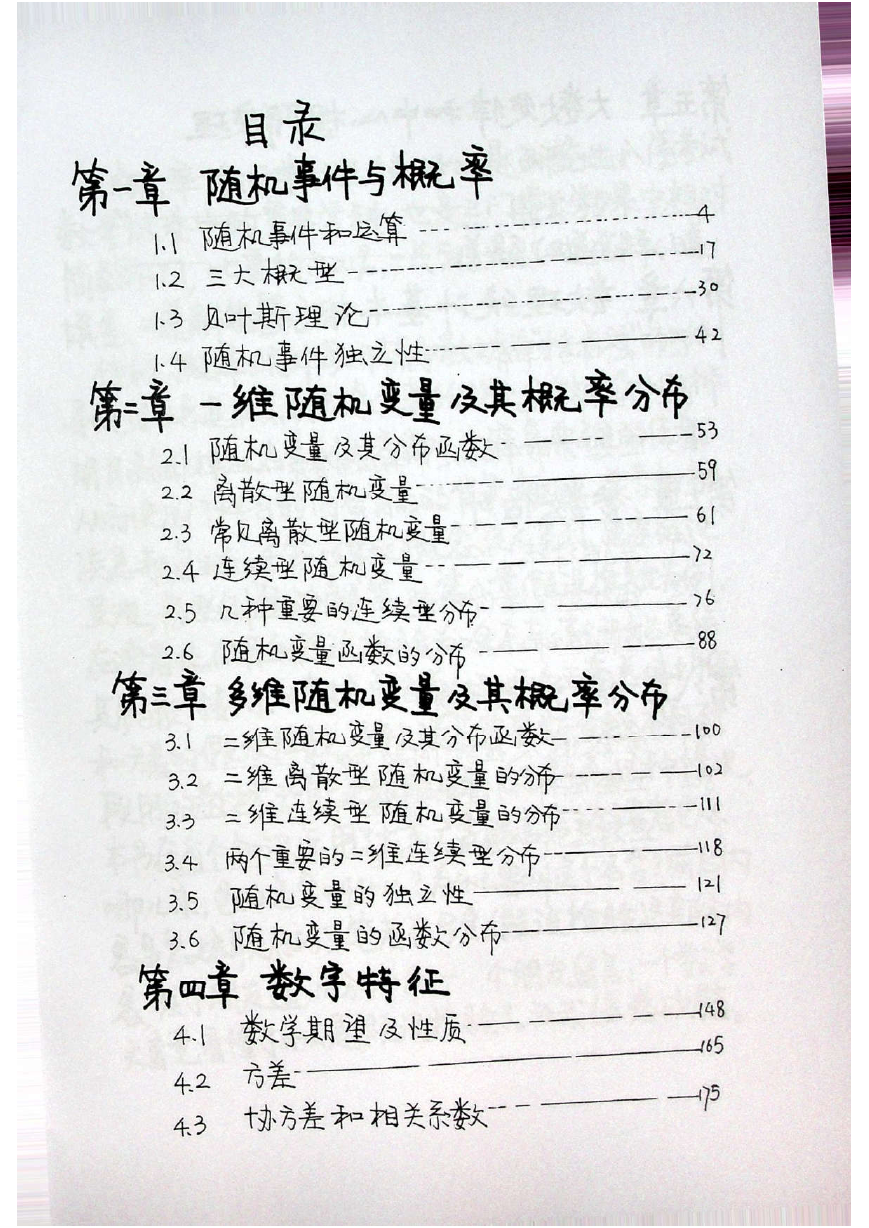 目录
第一章 随机事件与概率
1.1 随机事件和运算 4
1.2 三大概型 17
1.3 贝叶斯理论 30
1.4 随机事件独立性 42
第二章 一维随机变量及其概率分布
2.1 随机变量及其分布函数 53
2.2 离散型随机变量 59
2.3 常见离散型随机变量 61
2.4 连续型随机变量 72
2.5 几种重要的连续型分布 76
2.6 随机变量函数的分布 88
第三章 多维随机变量及其概率分布
3.1 二维随机变量及其分布函数 100
3.2 二维离散型随机变量的分布 102
3.3 二维连续型随机变量的分布 111
3.4 两个重要的二维连续型分布 118
3.5 随机变量的独立性 121
3.6 随机变量的函数分布 127
第四章 数字特征
4.1 数学期望及性质 148
4.2 方差 165
4.3 协方差和相关系数 175